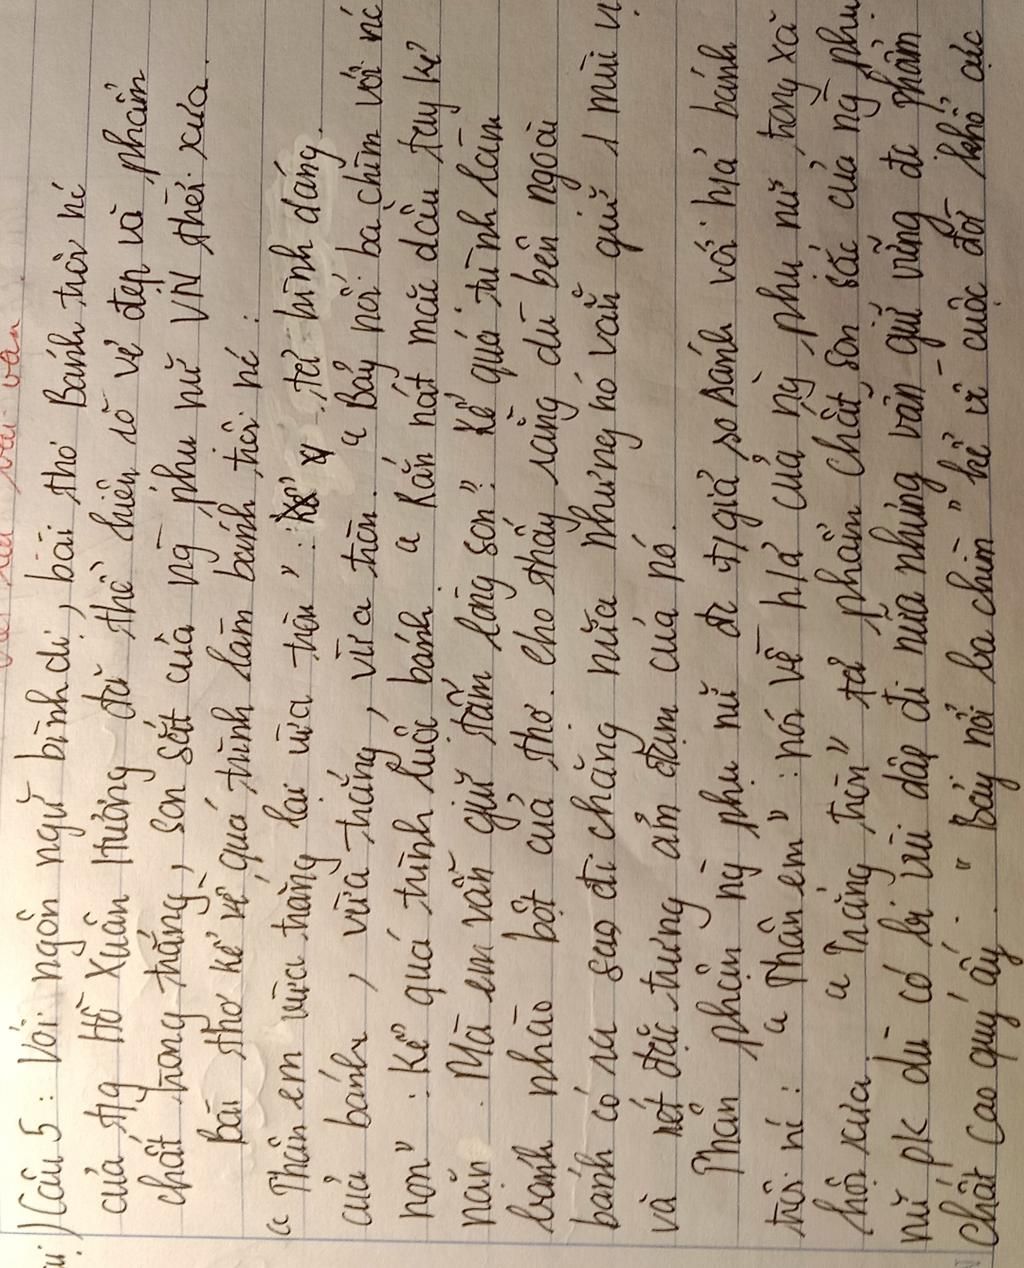 Câu 5: Với ngôn ngữ bình dị, bài thơ Bánh trôi nc
của tg Hồ Xuân Hương đã thể hiện rõ vẻ đẹp và phẩm
chất trong trắng, son sắt của ng phụ nữ VN thời xưa.
Bài thơ kể về quá trình làm bánh trôi nc:
" Thân em vừa trắng lại vừa tròn": tả hình dáng
của bánh, vừa trắng, vừa tròn. " Bảy nổi ba chìm với nc
non": Kể quá trình luộc bánh " Rắn nát mặc dầu tay kẻ
nặn. Mà em vẫn giữ tấm lòng son": kể quá trình làm
bánh nhào bột của thơ. cho thấy rằng dù bên ngoài
bánh có ra sao đi chăng nữa nhưng nó vẫn giữ 1 mùi vị
và nét đặc trưng ấm đậm của nó.
Thân phận ng phụ nữ đc t/giả so sánh với h/ả bánh
trôi nc: " Thân em": nói về h/ả của ng phụ nữ trong xã
hội xưa. " Trắng tròn" tả phẩm chất son sắc của ng phụ
nữ pk dù có bị vùi dập đi nữa nhưng vẫn giữ vững đc phẩm
chất cao quý ấy. " Bảy nổi ba chìm" kể về cuộc đời khổ cực